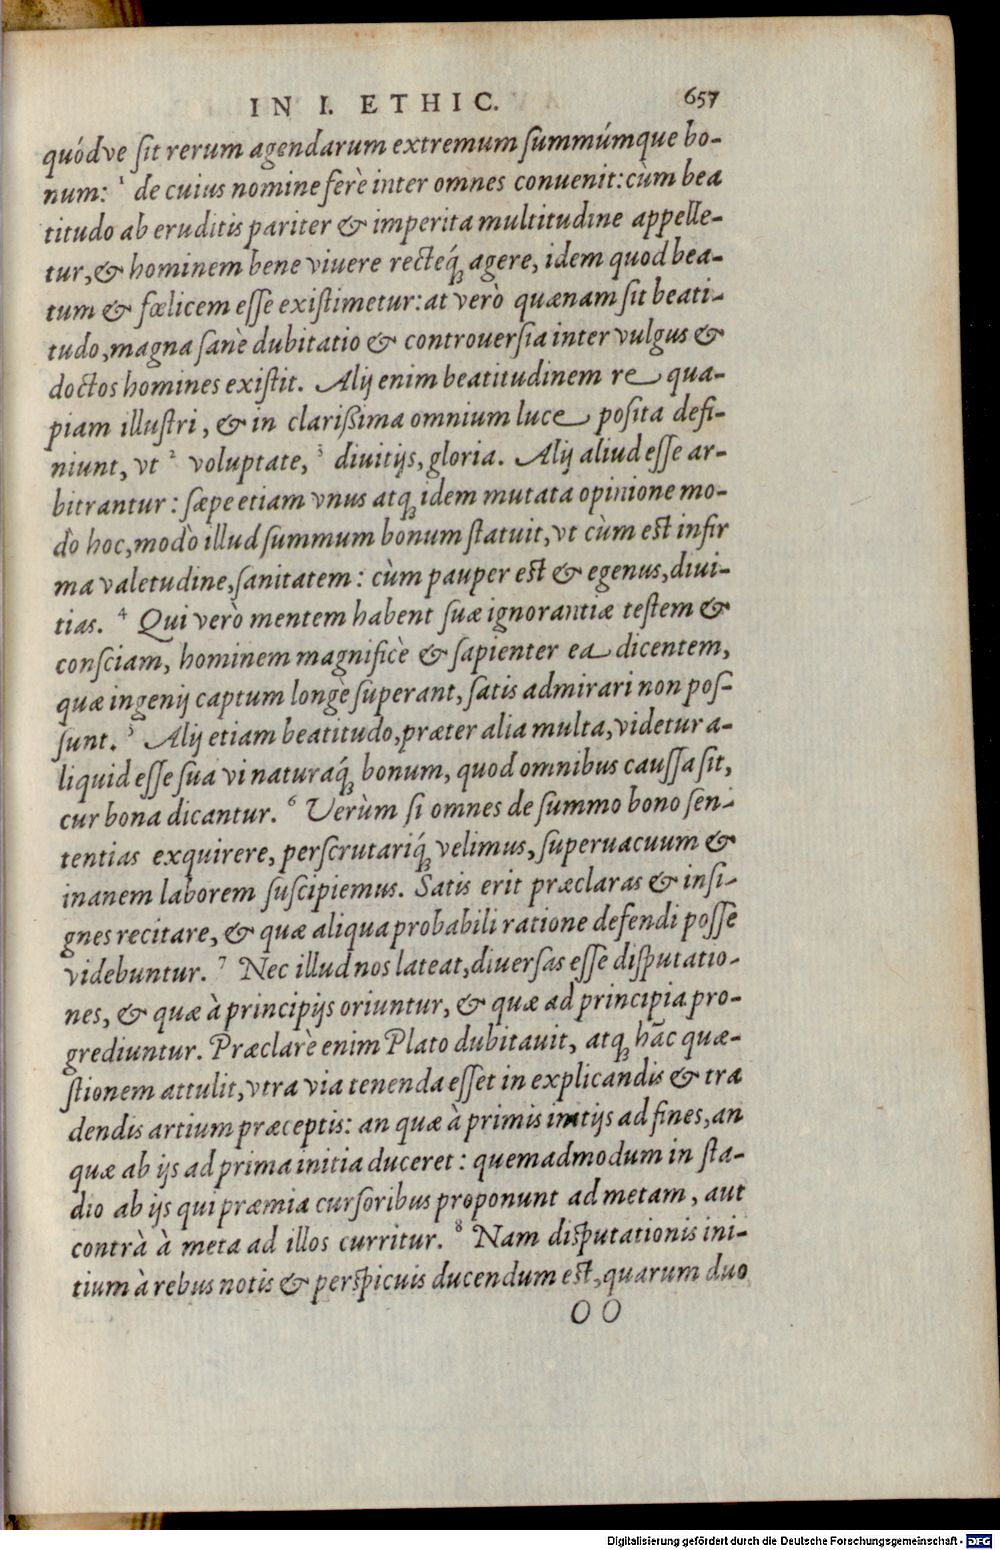 IN I. ETHIC. 657
quódve sit rerum agendarum extremum summúmque bo-
num: 1 de cuius nomine ferè inter omnes conuenit: cùm bea
titudo ab eruditis pariter & imperita multitudine appelle-
tur, & hominem bene viuere recteq́; agere, idem quod bea-
tum & fœlicem esse existimetur: at verò quænam sit beati-
tudo, magna sanè dubitatio & controuersia inter vulgus &
doctos homines existit. Alij enim beatitudinem re qua-
piam illustri, & in clarißima omnium luce posita defi-
niunt, vt 2 voluptate, 3 diuitijs, gloria. Alij aliud esse ar-
bitrantur: sæpe etiam vnus atq; idem mutata opinione mo-
dò hoc, modò illud summum bonum statuit, vt cùm est infir
ma valetudine, sanitatem: cùm pauper est & egenus, diui-
tias. 4 Qui verò mentem habent suæ ignorantiæ testem &
consciam, hominem magnificè & sapienter ea dicentem,
quæ ingenij captum longè superant, satis admirari non pos-
sunt. 5 Alij etiam beatitudo, præter alia multa, videtur a-
liquid esse sua vi naturaq́; bonum, quod omnibus caussa sit,
cur bona dicantur. 6 Verùm si omnes de summo bono sen-
tentias exquirere, perscrutariq́; velimus, superuacuum &
inanem laborem suscipiemus. Satis erit præclaras & insi-
gnes recitare, & quæ aliqua probabili ratione defendi posse
videbuntur. 7 Nec illud nos lateat, diuersas esse disputatio-
nes, & quæ à principijs oriuntur, & quæ ad principia pro-
grediuntur. Præclarè enim Plato dubitauit, atq; hāc quæ-
stionem attulit, vtra via tenenda esset in explicandis & tra
dendis artium præceptis: an quæ à primis initijs ad fines, an
quæ ab ijs ad prima initia duceret: quemadmodum in sta-
dio ab ijs qui præmia cursoribus proponunt ad metam, aut
contrà à meta ad illos curritur. 8 Nam disputationis ini-
tium à rebus notis & perspicuis ducendum est, quarum duo
OO
Digitalisierung gefördert durch die Deutsche Forschungsgemeinschaft - DFG